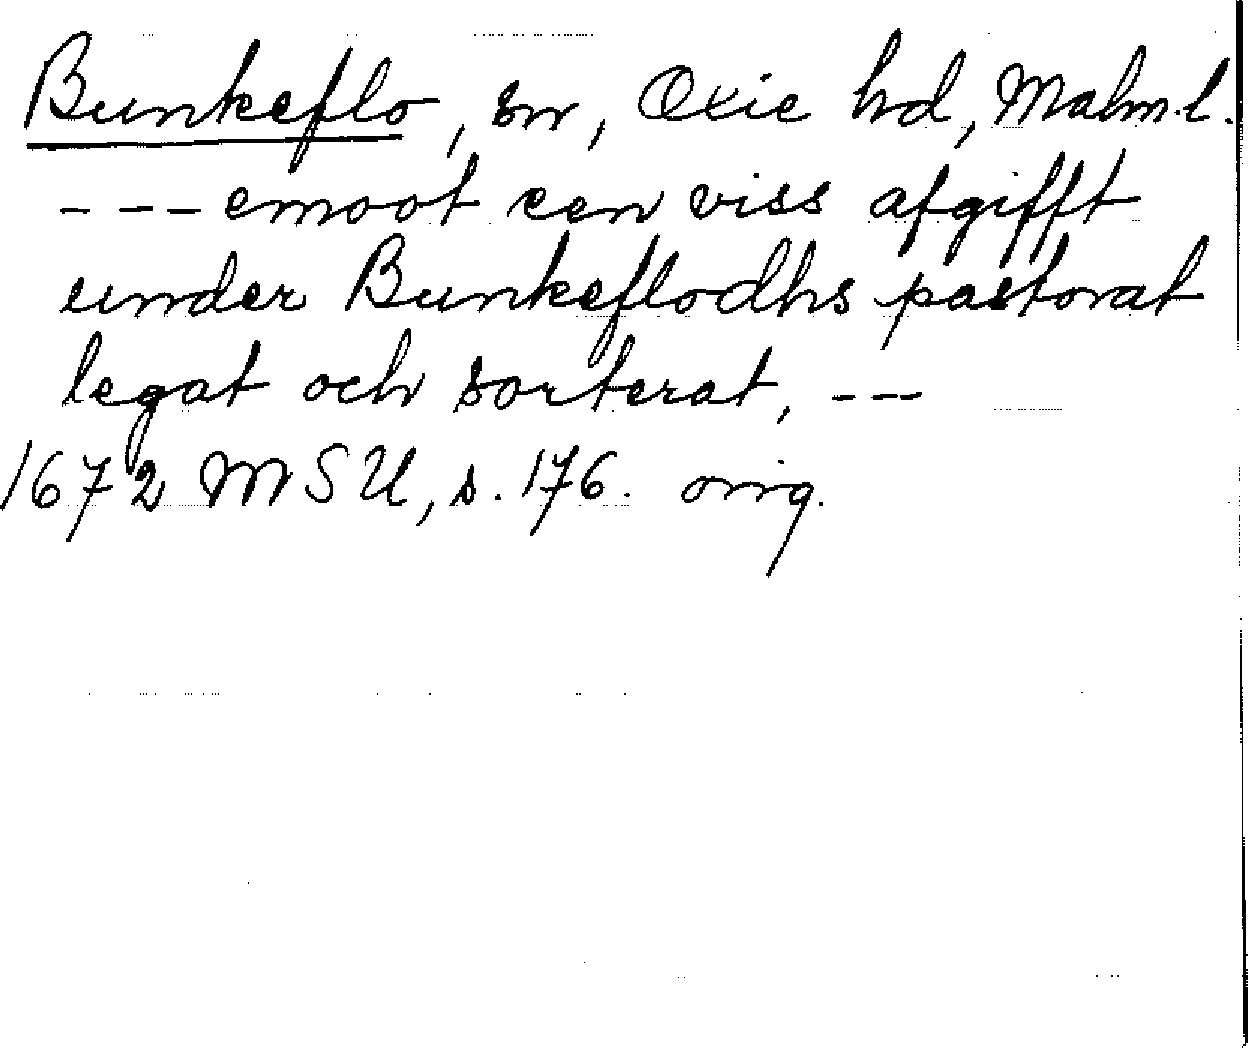 Bunkeflo, sn, Oxie hd, Malm.l.
--- emoot een viss afgifft
under Bunkeflodhs pastorat
legat och sorterat, ---
1672 MSU, s. 176. orig.